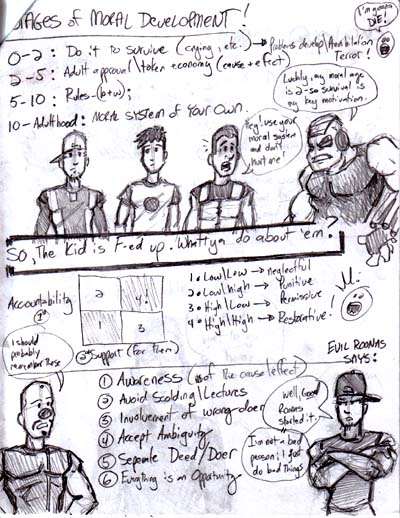 STAGES OF MORAL DEVELOPMENT!
I'm gonna DIE!
0-2: Do it to survive (crying, etc.) → Problems develop\Annihilation Terror!
2-5: Adult approval\token economy (cause + effect)
5-10: Rules-(b+w);
10-Adulthood: MORAL SYSTEM OF YOUR OWN.
Luckily, my moral age
is 2-so survival is
my key motivation.
Hey! use your
moral system
and don't
hurt me!
So, The Kid is F-ed up. Whattya do about 'em?
Accountability
1st
2
4!
1
3
2nd Support (for them)
1. Low\Low → neglectful
2. Low\high → Punitive
3. High\Low → Permissive
4. High\High → Restorative!
I should
probably
remember these
① Awareness (of the cause\effect)
② Avoid Scolding\Lectures
③ Involvement of wrong-doer
④ Accept Ambiguity
⑤ Seperate Deed/Doer
⑥ Everything is an Oppatunity
EVIL ROONAS
SAYS:
Well, Good
Roonas
started it.
I'm not a bad
person; I just
do bad things